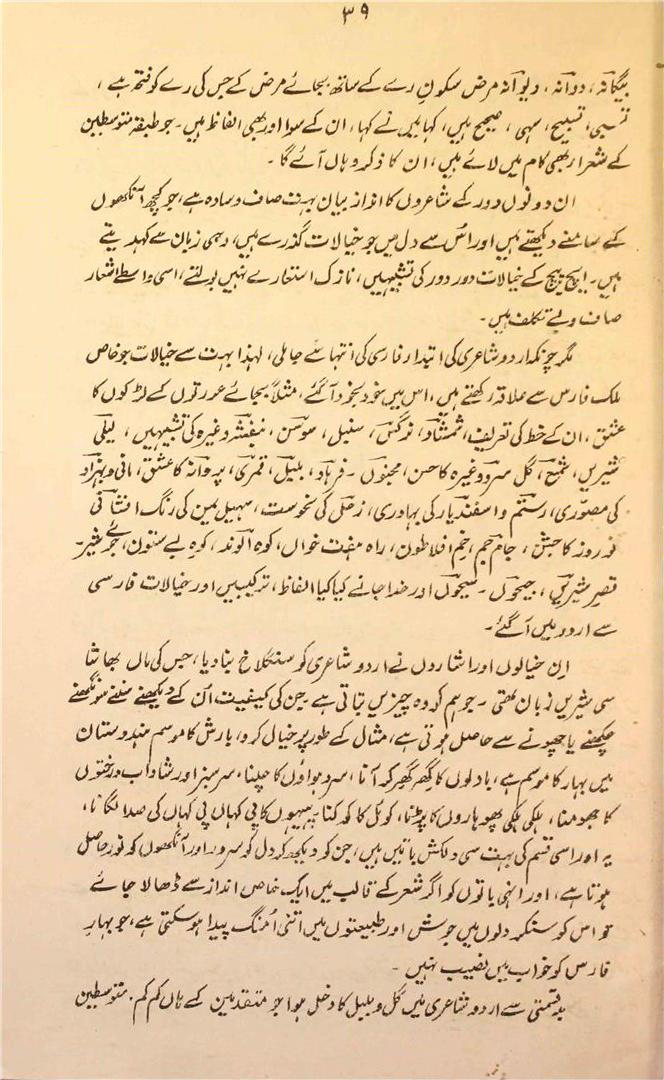 ۳۹
بیگانہ، دوانہ، دیوانہ مرض سکونِ رے کے ساتھ بجائے مرض کے جس کی رے کو فتحہ ہے،
تسبی، تسبیح، سہی، صحیح ہیں، کہا میں نے کہا، ان کے سوا اور بھی الفاظ ہیں۔ جو طبقۂ متوسطین
کے شعراء بھی کام میں لائے ہیں، ان کا ذکر وہاں آئے گا۔
ان دونوں دور کے شاعروں کا انداز بیان بہت صاف و سادہ ہے، جو کچھ آنکھوں
کے سامنے دیکھتے ہیں اور اس سے دل میں جو خیالات گذرے ہیں، وہی زبان سے کہدیتے
ہیں۔ ایچ پیچ کے خیالات دور دور کی تشبیہیں، نازک استعارے نہیں بولتے، اسی واسطے اشعار
صاف و بے تکلف ہیں۔
مگر چونکہ اردو شاعری کی ابتدار فارسی کی انتہا سے جا ملی، لہذا بہت سے خیالات جو خاص
ملک فارس سے علاقہ رکھتے ہیں، اس میں خود بخود آ گئے، مثلاً بجائے عورتوں کے لڑکوں کا
عشق، ان کے خط کی تعریف، شمشاد، نرگس، سنبل، سوسن، بنفشہ وغیرہ کی تشبیہیں، لیلی
شیریں، شمع، گل سرو وغیرہ کا حسن، مجنوں۔ فرہاد، بلبل، قمری، پروانہ کا عشق، مانی و بہزاد
کی مصوری، رستم و اسفندیار کی بہادری، زحل کی نحوست، سہیل یمن کی رنگ افشانی
نوروز کا جشن، جام جم، خم افلاطون، راہ ہفت خواں، کوہ الوند، کوہ بے ستون، جوئے شیر۔
قصر شیریں، جیحوں۔ سیحوں اور خدا جانے کیا کیا الفاظ، ترکیبیں اور خیالات فارسی
سے اردو میں آ گئے۔
اِن خیالوں اور اشاروں نے اردو شاعری کو سنگلاخ بنا دیا، جس کی ماں بھاشا
سی شیریں زبان تھی۔ جو ہم کو وہ چیزیں بتاتی ہے۔ جن کی کیفیت اُن کے دیکھنے سننے سونگھنے
چکھنے یا چھونے سے حاصل ہوتی ہے، مثال کے طور پر خیال کرو، بارش کا موسم ہندوستان
میں بہار کا موسم ہے، بادلوں کا گھر گھر کر آنا، سرد ہواؤں کا چلنا، سرسبز اور شاداب درختوں
کا جھومنا، ہلکی ہلکی پھوہاروں کا پڑنا، کوئل کا کوکنا، پپیہوں کا پی کہاں پی کہاں کی صدا لگانا،
یہ اور اسی قسم کی بہت سی دلکش باتیں ہیں، جن کو دیکھ کر دل کو سرور اور آنکھوں کو نور حاصل
ہوتا ہے، اور انہی باتوں کو اگر شعر کے قالب میں ایک خاص انداز سے ڈھالا جائے
تو اس کو سنکر دلوں میں جوش اور طبیعتوں میں اتنی اُمنگ پیدا ہو سکتی ہے، جو بہارِ
فارس کو خواب میں نصیب نہیں۔
بدقسمتی سے اردو شاعری میں گل و بلبل کا دخل ہوا جو متقدمین کے ہاں کم کم۔ متوسطین